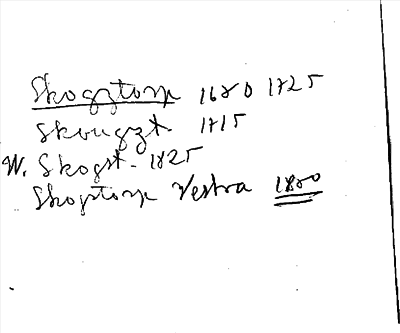 Skogztorp 1680 1725
Skougzt 1715
W. Skogst. 1825
Skogstorp Vestra 1880